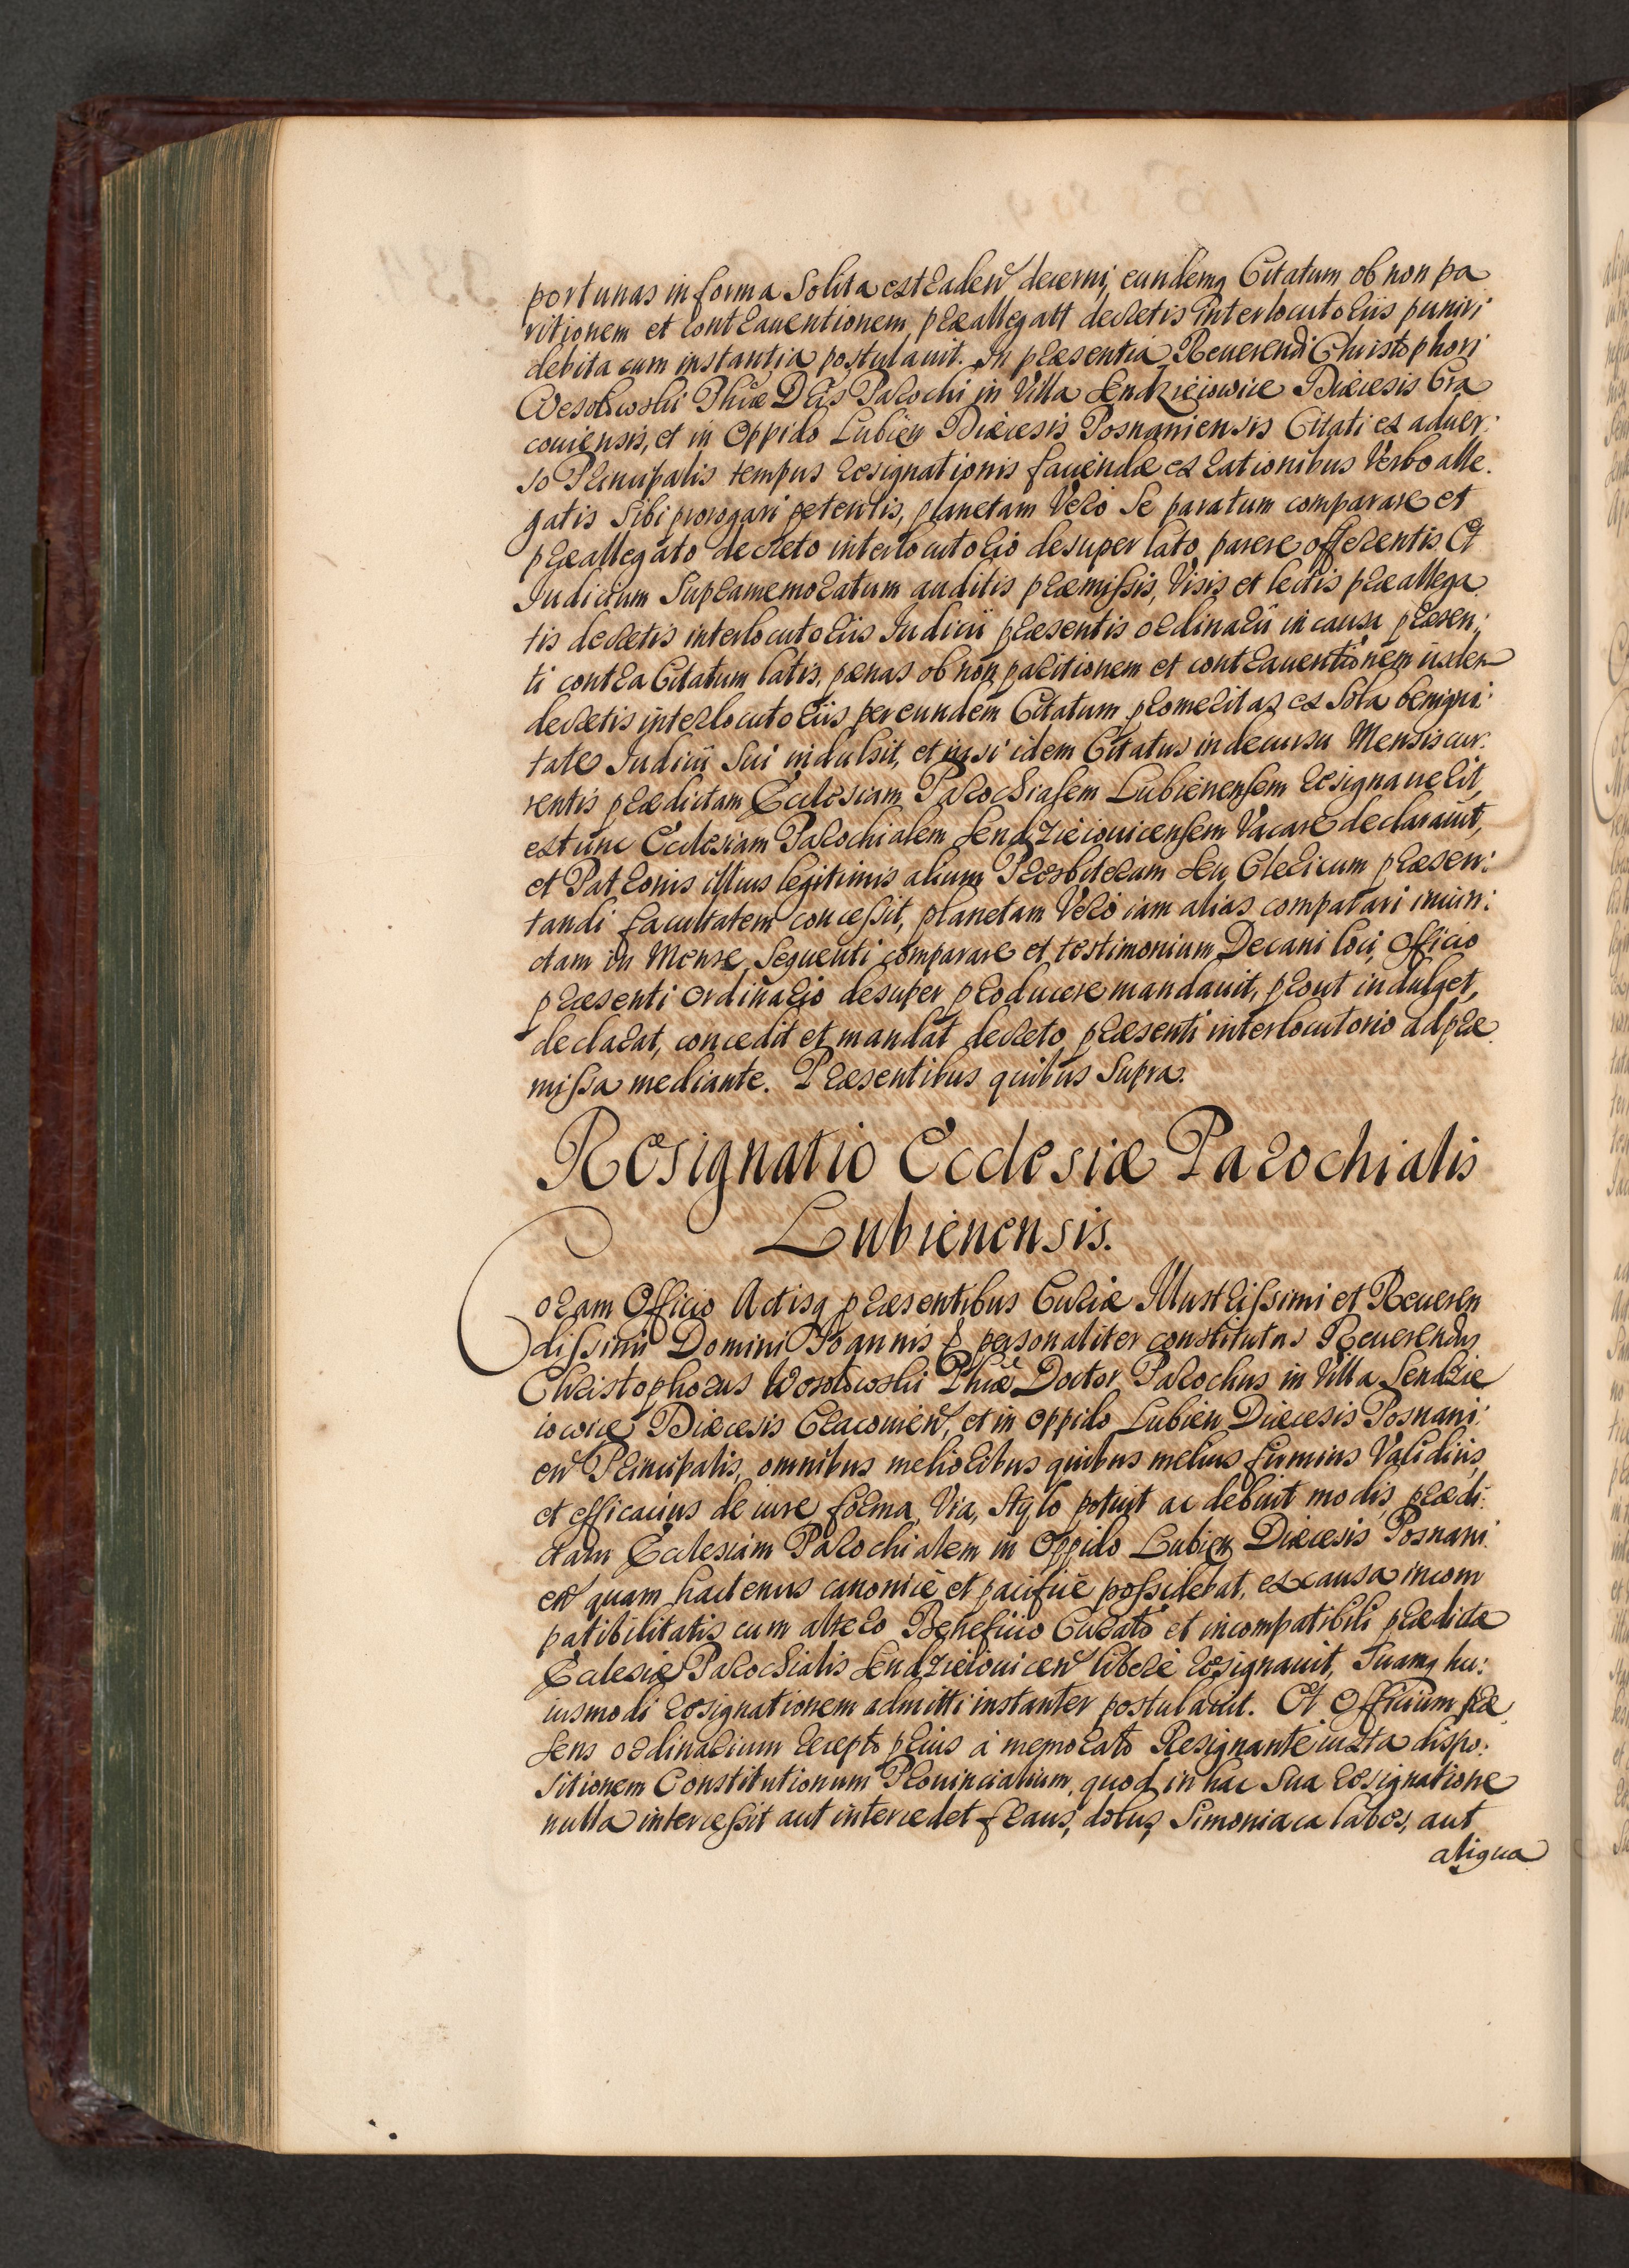 portunas in forma Solita extraden decerni, eundemq Citatum ob non pa
ritionem et contrauentionem præallegatt decretis interlocutoriis puniri
debita cum instantia postulauit. In præsentia Reuerendi Christophori
Wesolowski Phiæ Dris Parochi in Villa Sendzieiowice Diæcesis Cra
couiensis, et in Oppido Lubien Diæcesis Posnaniensis Citati ex aduer:
so Principalis tempus resignationis faciendæ ex rationibus Verbo alle.
gatis Sibi prorogari petentis, planetam Vero Se paratum comparare et
præallegato decreto interlocutorio desuper lato parere offerentis. Et
Iudicium Supramemoratum auditis præmissis, Visis et lectis præallega
tis decretis interlocutoriis Iudicii præsentis ordinarii in causa præsen:
ti contra Citatum latis, pænas ob non paritionem et contrauentionem iisdem
decretis interlocutoriis per eundem Citatum promeritas ex Sola benigni:
tate Iudicii Sui indulsit, et nisi idem Citatus in decursu Mensis cur:
rentis prædictam Ecclesiam Parochialem Lubienensem resignauerit,
extunc Ecclesiam Parochialem Sendzieiouicensem Vacare declarauit,
et Patronis illius legitimis alium Præsbiterum Seu Clericum præsen:
tandi facultatem concessit, planetam Vero iam alias comparari iniun:
ctam in Mense Sequenti comparare et testimonium Decani loci, Officio
præsenti Ordinario desuper producere mandauit, prout indulget,
declarat, concedit et mandat decreto præsenti interlocutorio ad præ
missa mediante. Præsentibus quibus Supra.
Resignatio Ecclesiæ Parochialis
Lubienensis.
Coram Officio Actisq præsentibus Curiæ Illustrissimi et Reueren
dissimi Domini Ioannis & personaliter constitutus Reuerendus
Christophorus Wesolowski Phiæ Doctor Parochus in Villa Sendzie
iowice Diæcesis Cracouien, et in Oppido Lubien Diæcesis Posnani:
en Principalis, omnibus melioribus quibus melius firmius Validius,
et efficacius de iure, forma, Via, Stylo potuit ac debuit modis, prædi:
ctam Ecclesiam Parochialem in Oppido Lubien Diæcesis Posnani:
en quam hactenus canonicè et pacificè possidebat, ex causa incom
patibilitatis cum altero Beneficio Curato et incompatibili prædictæ
Ecclesiæ Parochialis Sendzieiouicen liberè resignauit, Suamq hu:
iusmodi resignationem admitti instanter postulauit. Et Officium præ
sens ordinarium recepto prius à memorato Resignante iuxta dispo:
sitionem Constitutionum Prouincialium, quod in hac Sua resignatione
nulla intercessit aut intercedet fraus, dolus, Simoniaca labes, aut
aliqua